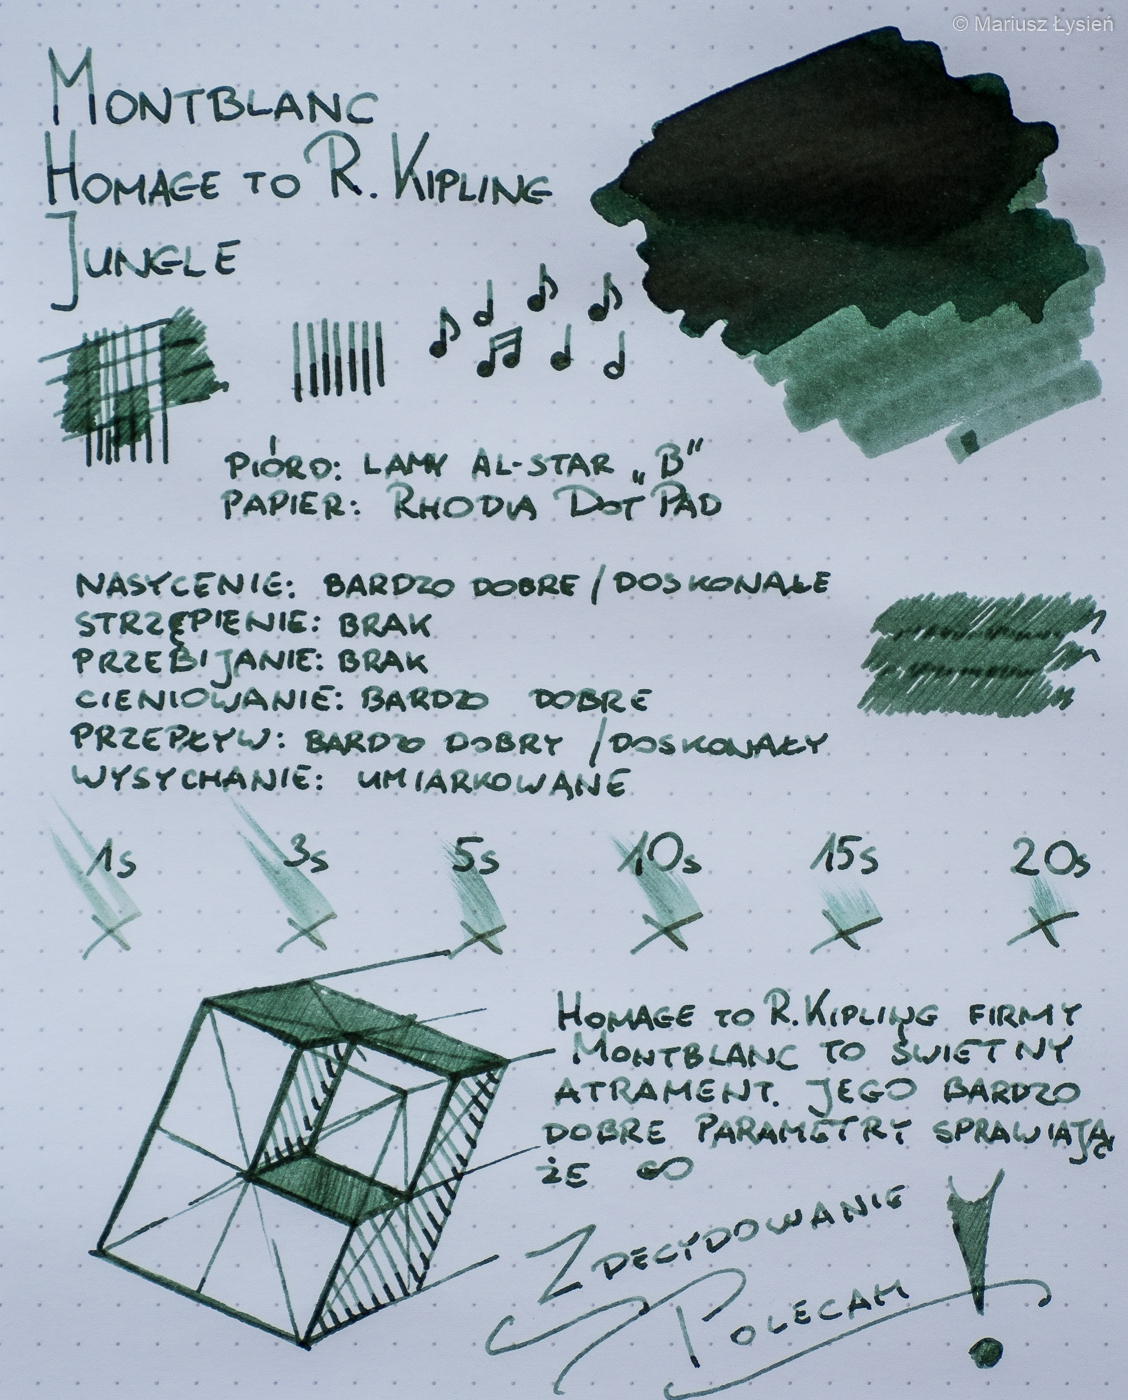 © Mariusz Łysień
MONTBLANC
HOMAGE TO R. KIPLING
JUNGLE
PIÓRO: LAMY AL-STAR „B”
PAPIER: RHODIA DOT PAD
NASYCENIE: BARDZO DOBRE / DOSKONAŁE
STRZĘPIENIE: BRAK
PRZEBIJANIE: BRAK
CIENIOWANIE: BARDZO DOBRE
PRZEPŁYW: BARDZO DOBRY / DOSKONAŁY
WYSYCHANIE: UMIARKOWANE
1s 3s 5s 10s 15s 20s
HOMAGE TO R. KIPLING FIRMY
MONTBLANC TO ŚWIETNY
ATRAMENT. JEGO BARDZO
DOBRE PARAMETRY SPRAWIAJĄ,
ŻE GO
ZDECYDOWANIE
POLECAM!